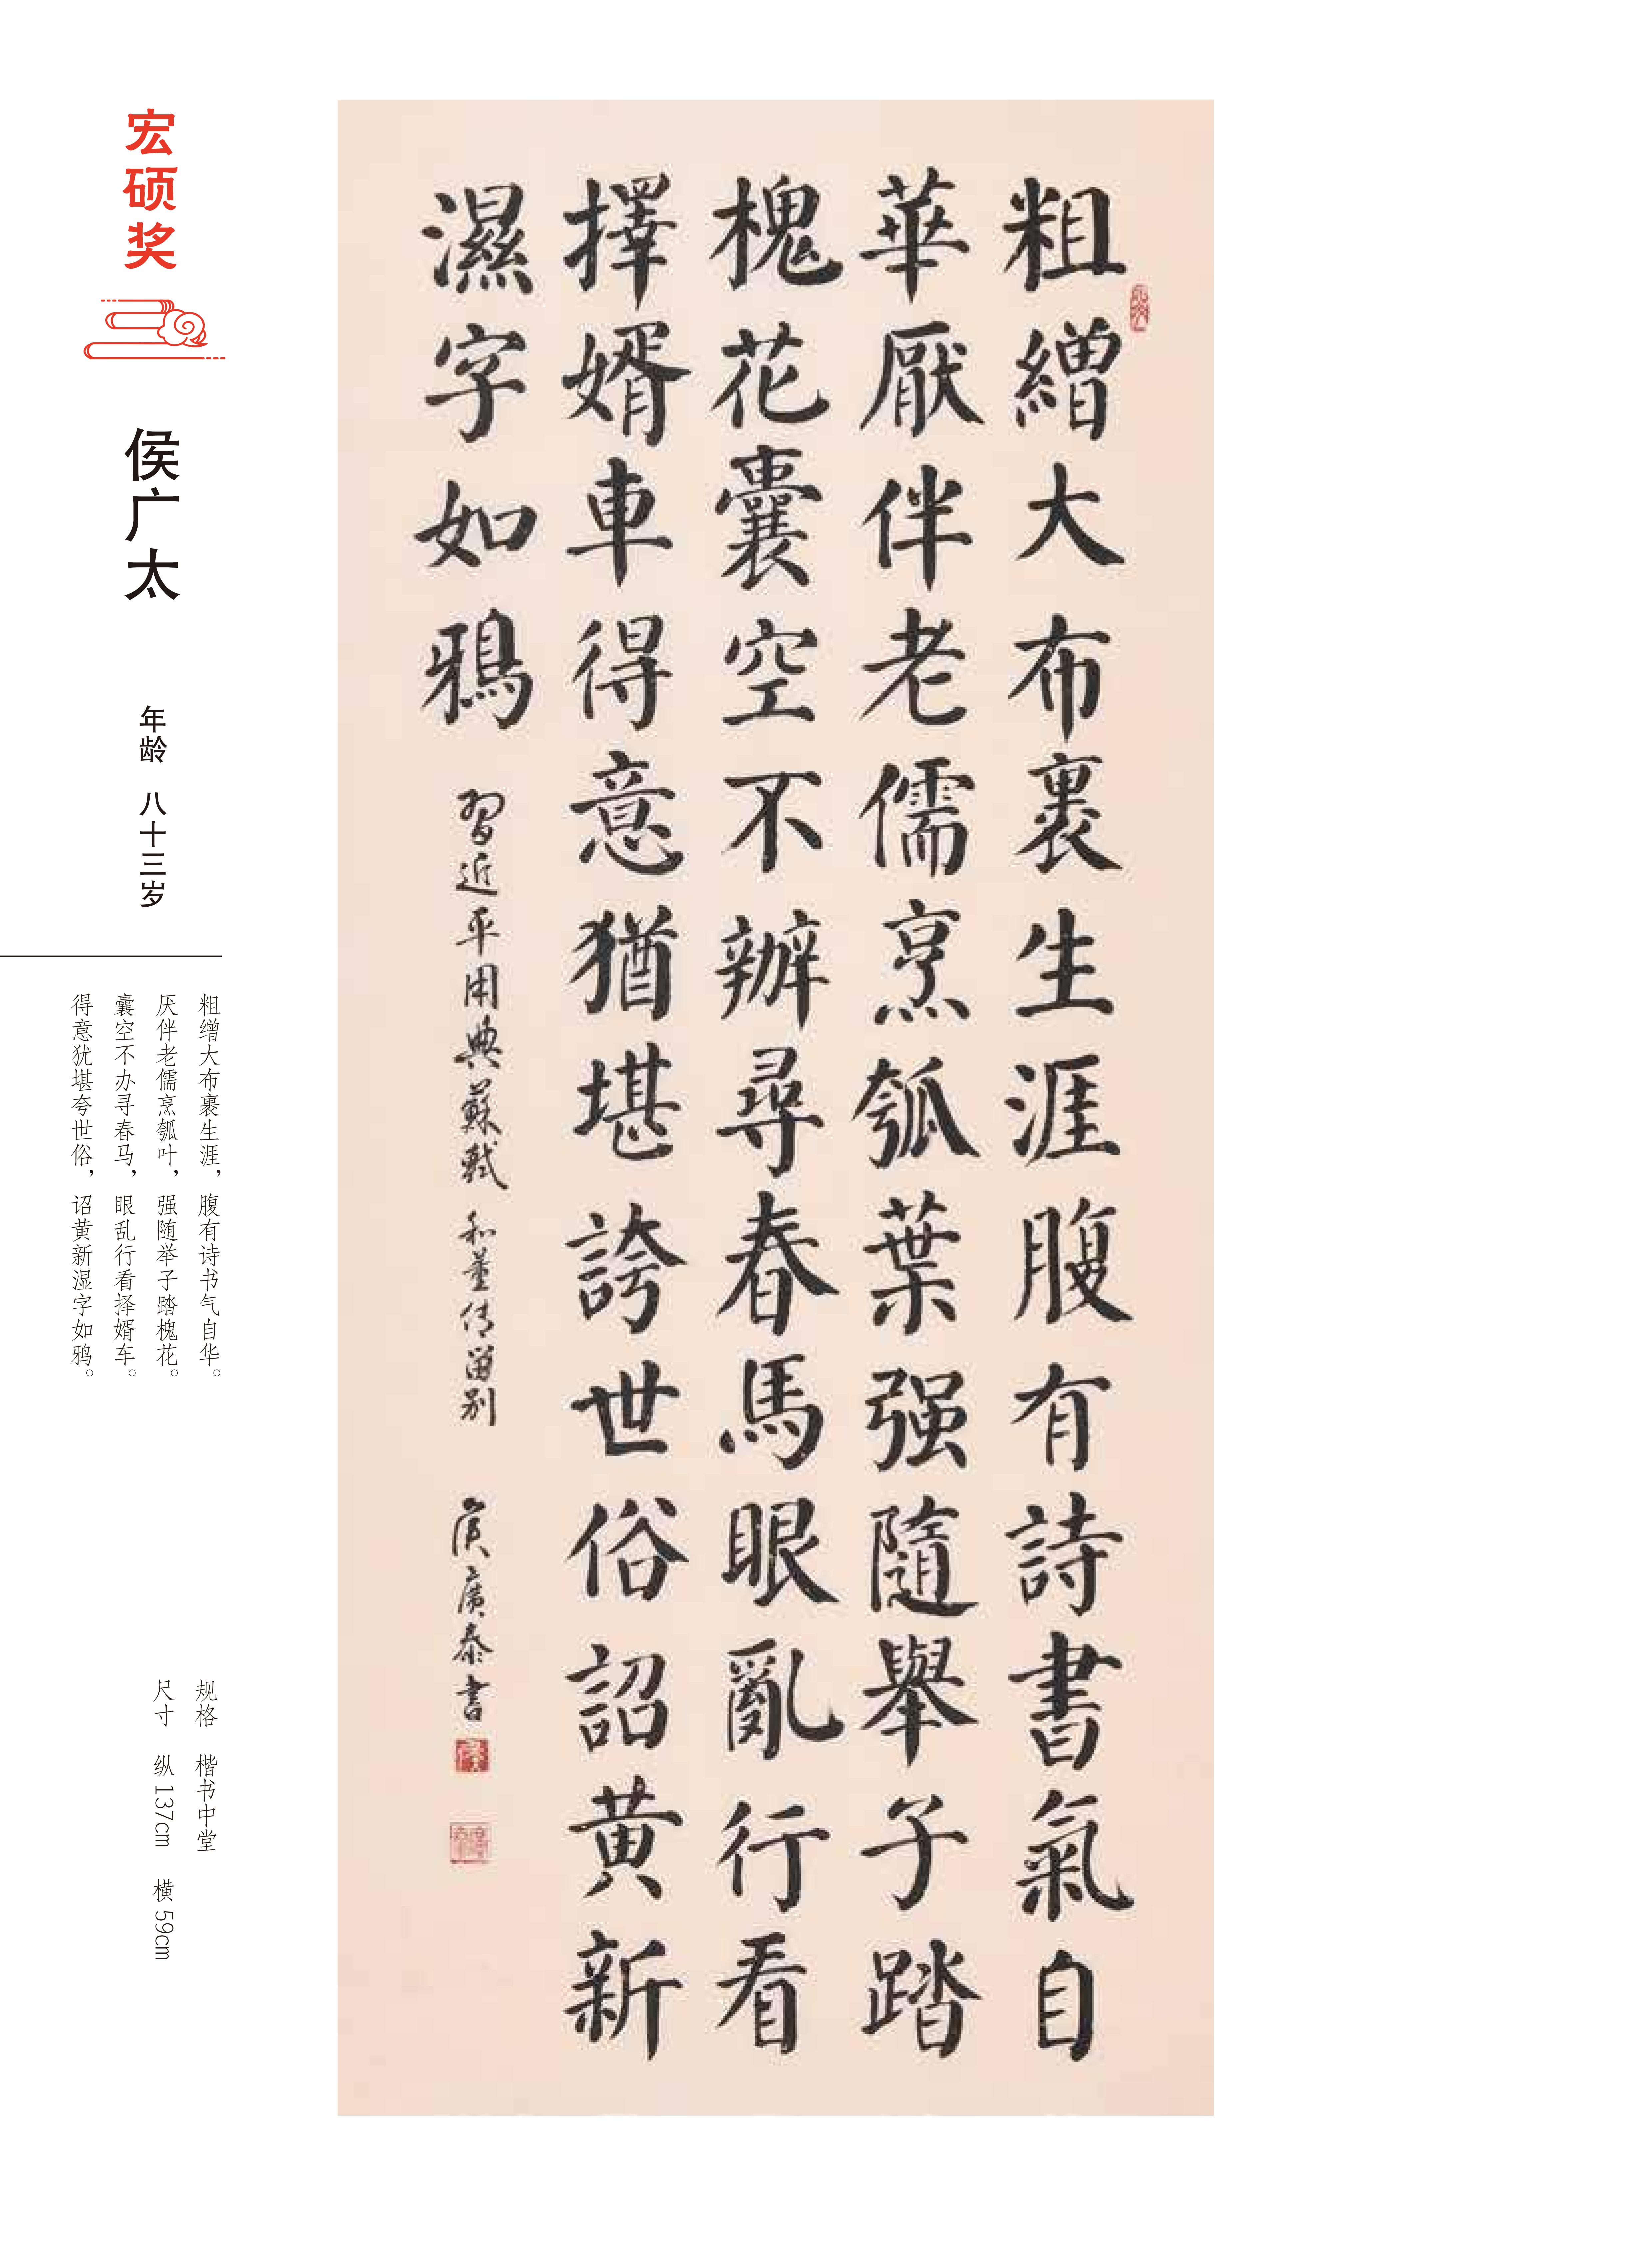 宏硕奖
侯广太
年龄 八十三岁
粗缯大布裹生涯，腹有诗书气自华。
厌伴老儒烹瓠叶，强随举子踏槐花。
囊空不办寻春马，眼乱行看择婿车。
得意犹堪夸世俗，诏黄新湿字如鸦。
规格 楷书中堂
尺寸 纵137cm 横59cm
粗繒大布裹生涯腹有詩書氣自
華厭伴老儒烹瓠葉强隨舉子踏
槐花囊空不辦尋春馬眼亂行看
擇婿車得意猶堪誇世俗詔黄新
濕字如鴉
習近平用典蘇軾 和董传留别 侯廣泰書